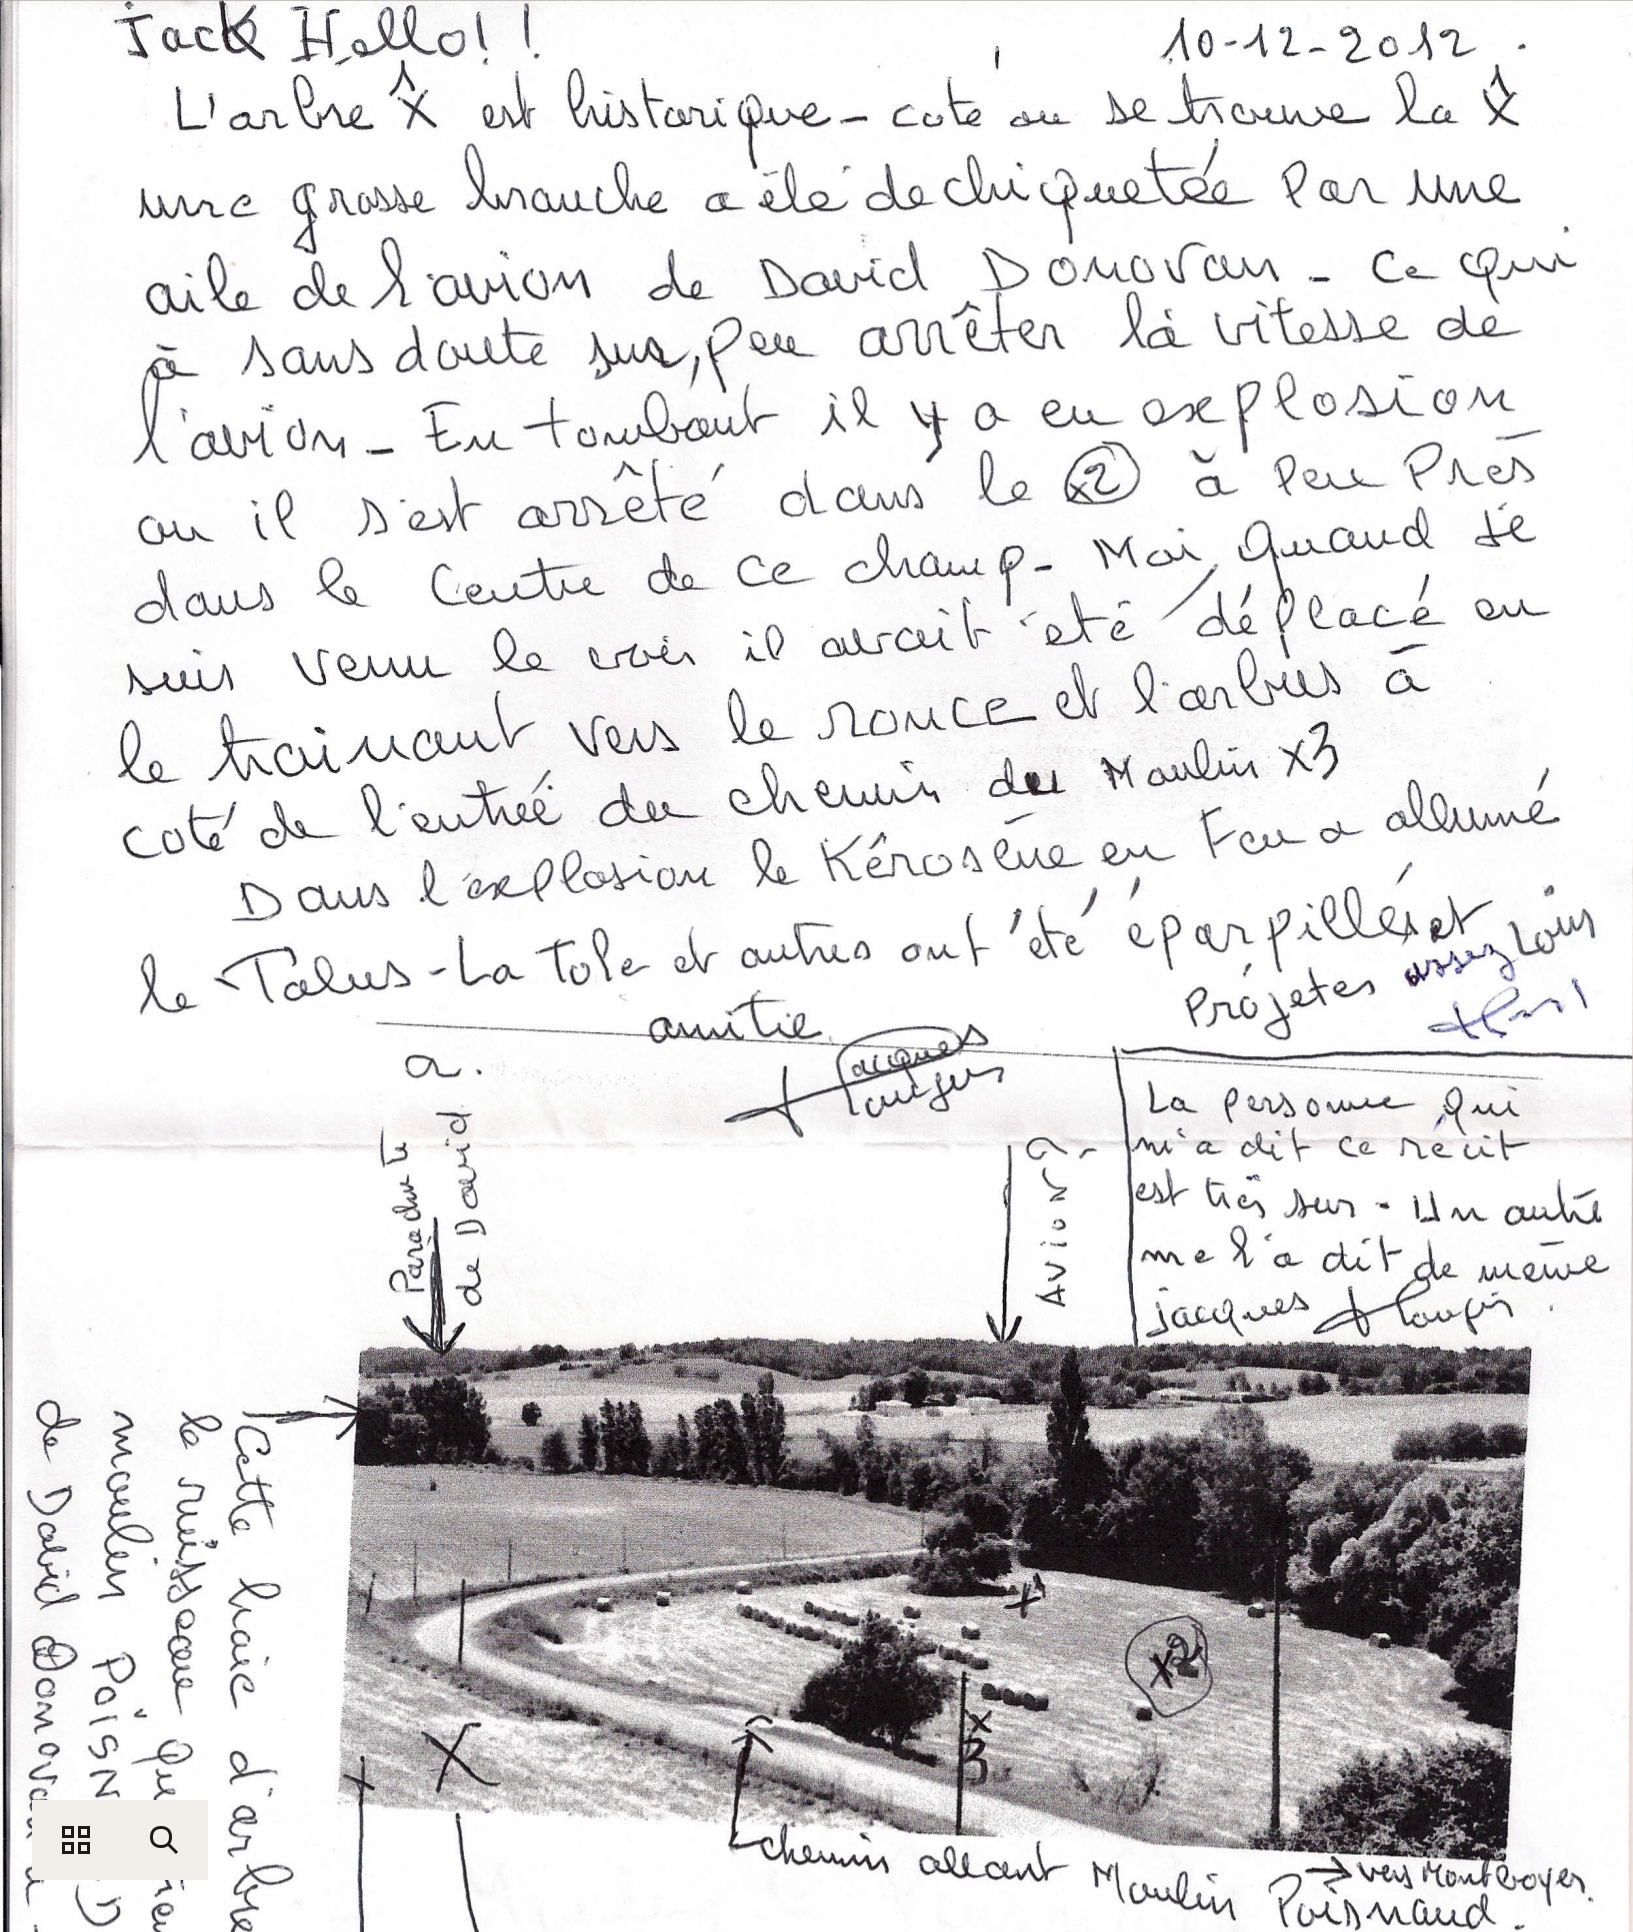 Jack Hello!!
10-12-2012.
L'arbre X1 est historique - coté ou se trouve la X1
une grosse branche a été dechiquetée Par une
aile de l'avion de David Donovan - Ce qui
à sans doute sur, peu arrêter là vitesse de
l'avion - En tombant il y a eu explosion
ou il s'est arrêté dans le x2 à Peu Près
dans le Centre de ce champ - Moi, quand je
suis venu le voir il avait été déplacé en
le trainant vers le ronce et l'arbres à
coté de l'entrée du chemin du Moulin x3
Dans l'explosion le Kérosène en Feu a allumé
le Talus - La Tole et autres ont été éparpillés et
Projetes assez Loin
amitie
Jacques
a.
Parachute
de David
Avion
La personne qui
m'a dit ce récit
est très sur - Un autre
me l'a dit de même
jacques
Cette haie d'arbre
le ruisseau
moulin
de David
x1
x2
x3
X
chemin allant Moulin Poisnaud.
→ vers Montboyer.